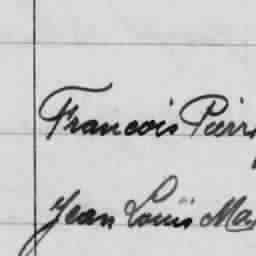 Francois Pierr
Jean Louis Ma